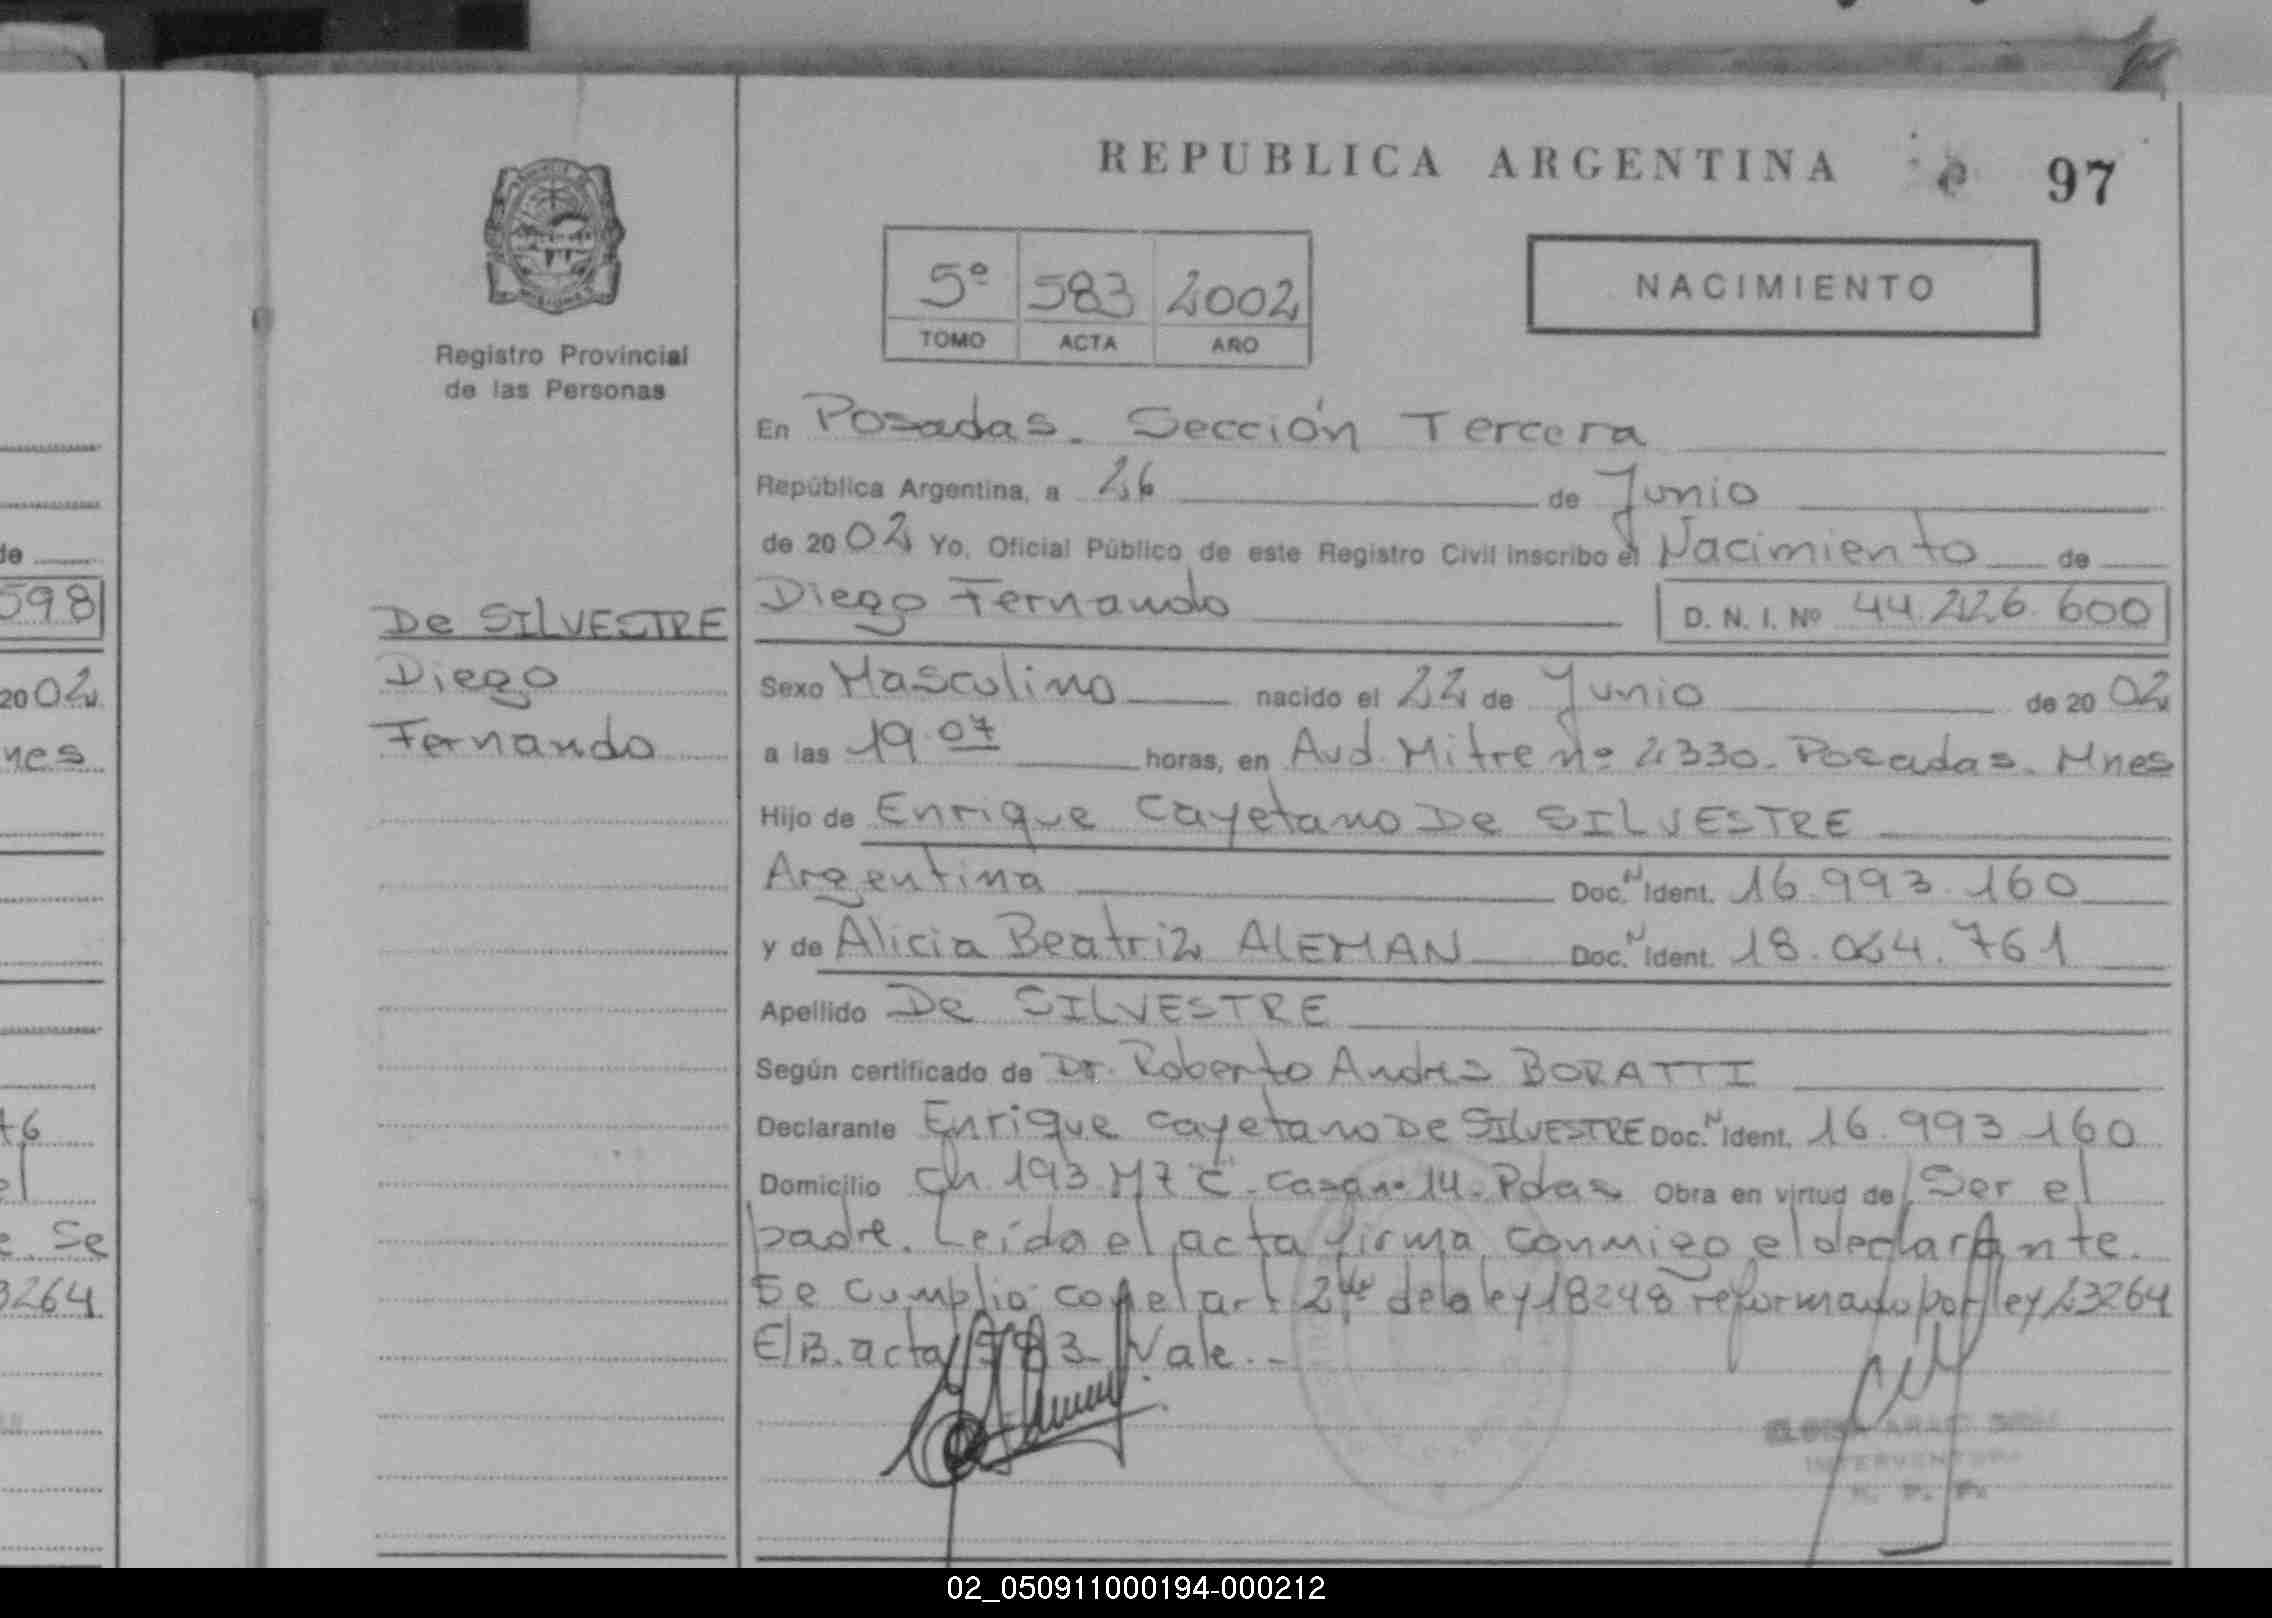 REPUBLICA ARGENTINA
97
5º 583 2002
TOMO ACTA AÑO
NACIMIENTO
Registro Provincial
de las Personas
En Posadas. Sección Tercera
República Argentina, a 26 de Junio
de 2002 Yo, Oficial Público de este Registro Civil inscribo el Nacimiento de
Diego Fernando D. N. I. Nº 44.226.600
De SILVESTRE
Diego
Fernando
Sexo Masculino nacido el 22 de Junio de 2002
a las 19.07 horas, en Avd. Mitre nº 2330. Posadas. Mnes
Hijo de Enrique Cayetano De SILVESTRE
Argentina Doc. N Ident. 16.993.160
y de Alicia Beatriz ALEMAN Doc. N Ident. 18.064.761
Apellido De SILVESTRE
Según certificado de Dr. Roberto Andres BORATTI
Declarante Enrique Cayetano De SILVESTRE Doc. N Ident. 16.993.160
Domicilio Ch. 193 M7 "C". Casa nº 14. Pdas Obra en virtud de Ser el
padre. Leída el acta firma conmigo el declarante.
Se cumplió con el art 2 de la ley 18248 reformado por ley 23264
E/B. acta 583 Vale.-
INTERVENTORA
R. P. P.
de
598
2002
nes
46
el
Se
3264
02_050911000194-000212